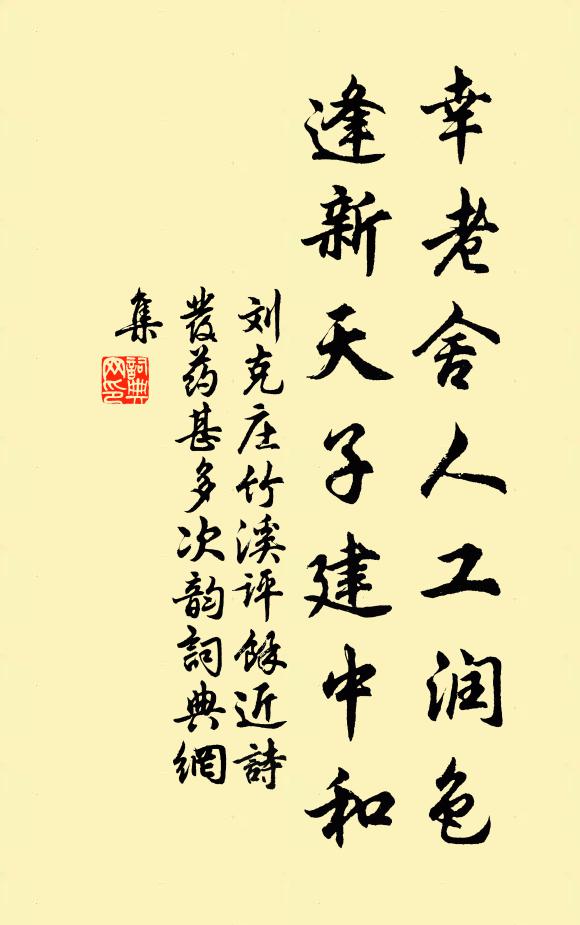 幸老舍人工润色
逢新天子建中和
刘克庄竹溪评餘近詩
發药甚多次韵詞典網
集
詞典
网印